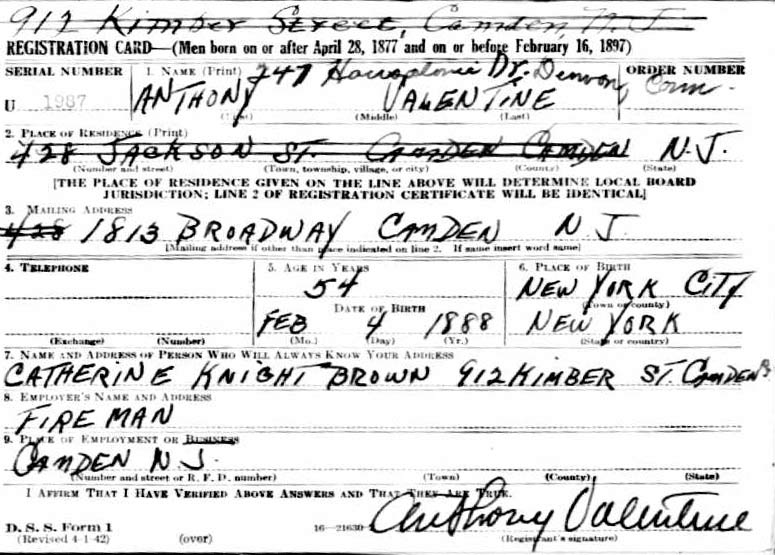 912 Kimber Street, Camden, N.J.
REGISTRATION CARD—(Men born on or after April 28, 1877 and on or before February 16, 1897)
SERIAL NUMBER 1. NAME (Print) 247 Dr. Conn. ORDER NUMBER
U 1987 ANTHONY VALENTINE
(First) (Middle) (Last)
2. PLACE OF RESIDENCE (Print)
428 JACKSON ST. CAMDEN CAMDEN N.J.
(Number and street) (Town, township, village, or city) (County) (State)
[THE PLACE OF RESIDENCE GIVEN ON THE LINE ABOVE WILL DETERMINE LOCAL BOARD
JURISDICTION; LINE 2 OF REGISTRATION CERTIFICATE WILL BE IDENTICAL]
3. MAILING ADDRESS
428 1813 BROADWAY CAMDEN N.J.
[Mailing address if other than place indicated on line 2. If same insert word same]
4. TELEPHONE 5. AGE IN YEARS 6. PLACE OF BIRTH
54 NEW YORK CITY
(Town or county)
DATE OF BIRTH
FEB 4 1888 NEW YORK
(Exchange) (Number) (Mo.) (Day) (Yr.) (State or country)
7. NAME AND ADDRESS OF PERSON WHO WILL ALWAYS KNOW YOUR ADDRESS
CATHERINE KNIGHT BROWN 912 KIMBER ST. CAMDEN
8. EMPLOYER'S NAME AND ADDRESS
FIREMAN
9. PLACE OF EMPLOYMENT OR BUSINESS
CAMDEN N.J.
(Number and street or R. F. D. number) (Town) (County) (State)
I AFFIRM THAT I HAVE VERIFIED ABOVE ANSWERS AND THAT THEY ARE TRUE.
Anthony Valentine
D. S. S. Form 1
(Revised 4-1-42) (over) 16—21630 (Registrant's signature)